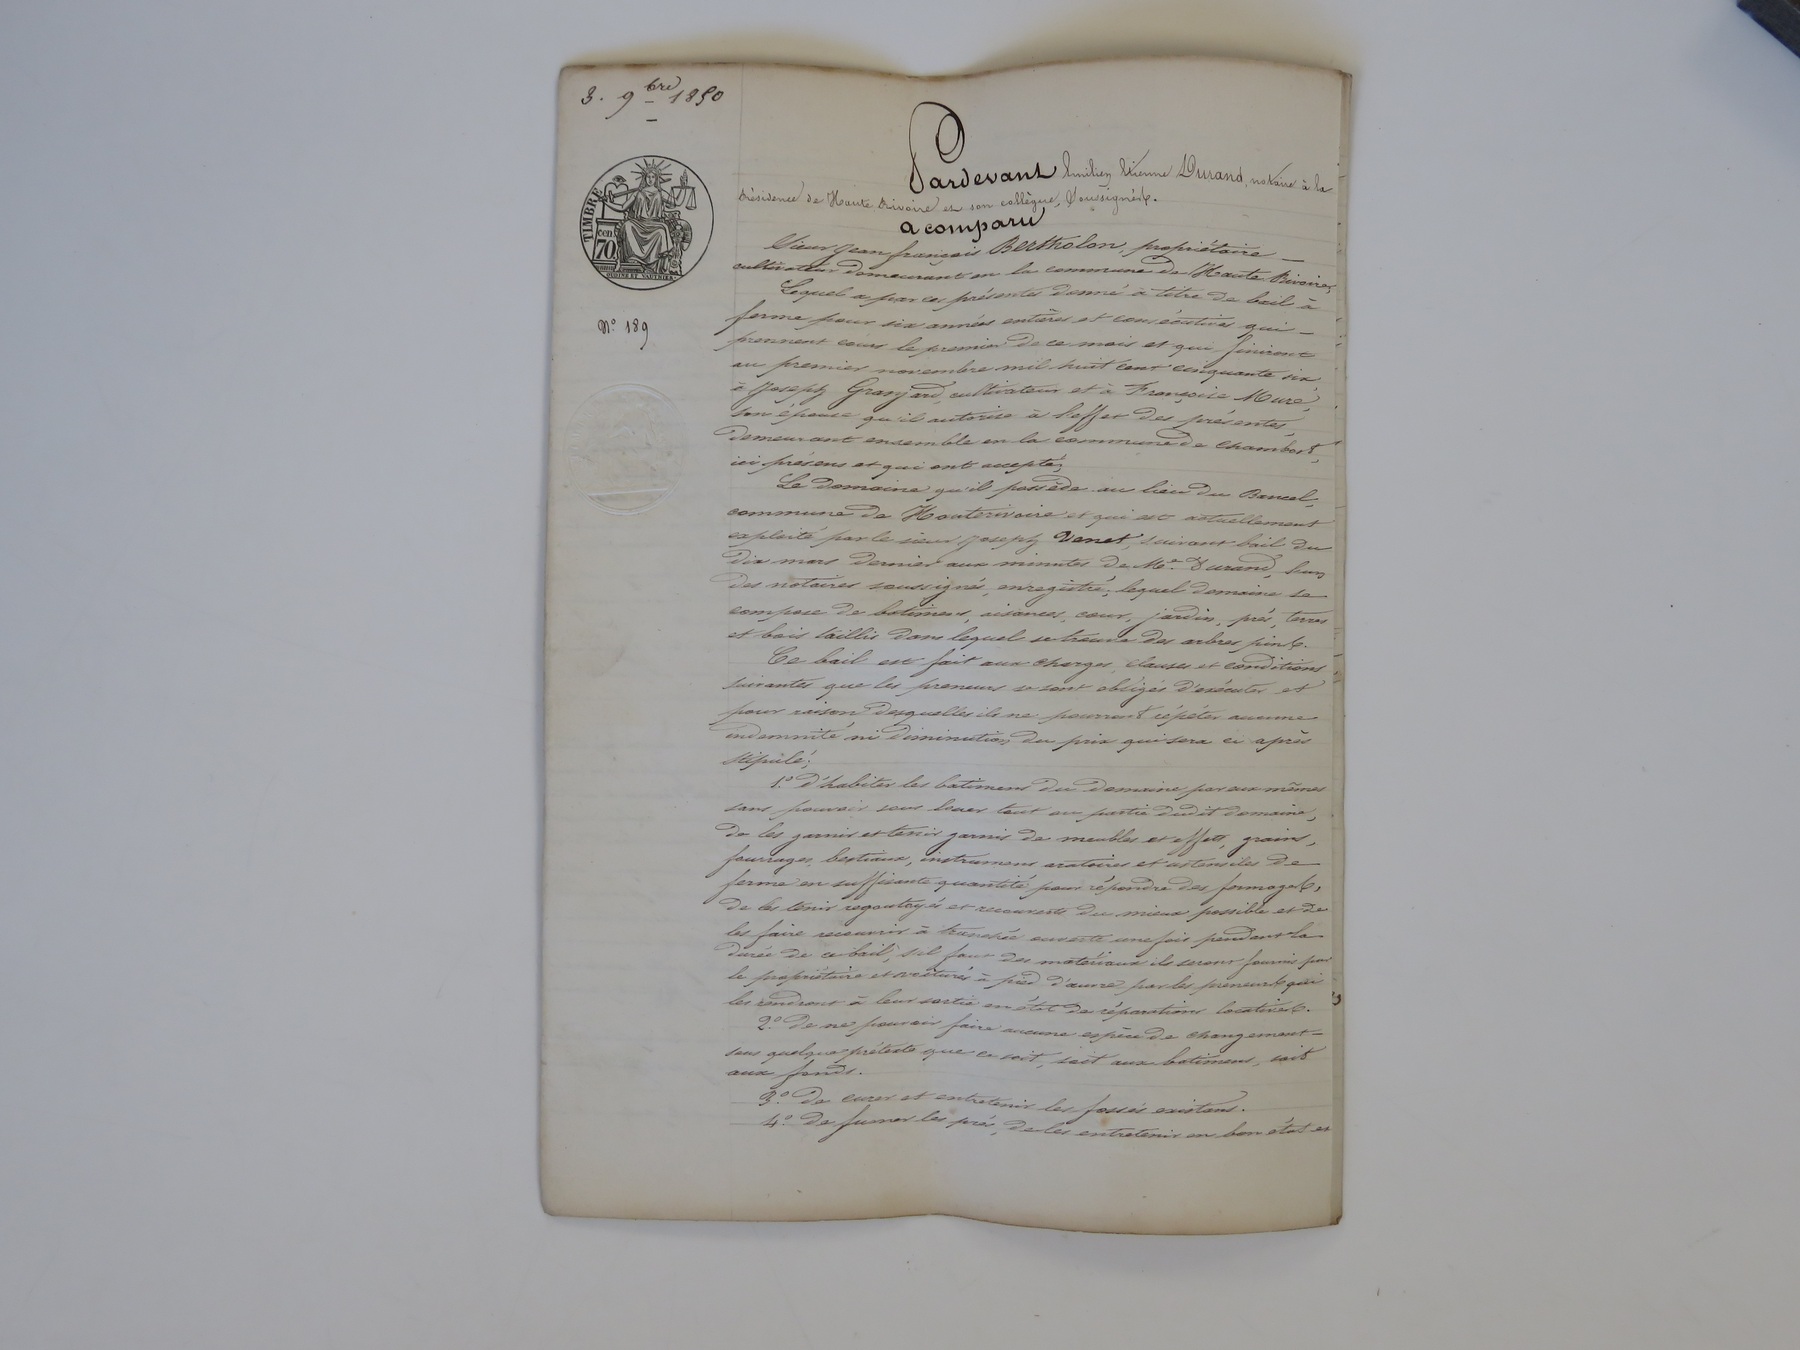 3. 9bre 1850
TIMBRE
70 cen
N° 189
Pardevant Emilien Etienne Durand, notaire à la
Résidence de Haute Rivoire et son collègue, Soussignés.
a comparu
Sieur Jean françois Bertholon, propriétaire
cultivateur demeurant en la commune de Haute Rivoire,
Lequel a par ces présentes donné à titre de bail à
ferme pour six années entières et consécutives qui
prennent cours le premier de ce mois et qui finiront
au premier novembre mil huit cent cinquante six,
à Joseph Granjard, cultivateur et à Françoise Mure,
son épouse qu'il autorise à l'effet des présentes,
demeurant ensemble en la commune de Chambost,
ici présens et qui ont accepté;
Le domaine qu'il possède au lieu du Bancel,
commune de Hauterivoire et qui est actuellement
exploité par le sieur Joseph Venet, suivant bail du
dix mars dernier aux minutes de Me. Durand, l'un
des notaires soussignés, enregistré, lequel domaine se
compose de batimens, aisances, cour, jardin, prés, terres
et bois taillis dans lequel se trouve des arbres pins.
Ce bail est fait aux charges, clauses et conditions
suivantes que les preneurs se sont obligés d'exécuter et
pour raison desquelles ils ne pourront répéter aucune
indemnité ni diminution du prix qui sera ci après
stipulé;
1.° d'habiter les batimens du domaine par eux mêmes
sans pouvoir sous louer tout ou partie dudit domaine,
de les garnir et tenir garnis de meubles et effets, grains,
fourrages, bestiaux, instrumens aratoires et ustensiles de
ferme en suffisante quantité pour répondre des fermages,
de les tenir regoutoyés et recouverts du mieux possible et de
les faire recouvrir à tranchée ouverte une fois pendant la
durée de ce bail; s'il faut des matériaux ils seront fournis par
le propriétaire et voiturés à pied d'œuvre par les preneurs qui
les rendront à leur sortie en état de réparations locatives.
2.° de ne pouvoir faire aucune espèce de changement
sous quelque prétexte que ce soit, soit aux batimens, soit
aux fonds.
3.° de curer et entretenir les fossés existans.
4.° de fumer les prés, de les entretenir en bon état et